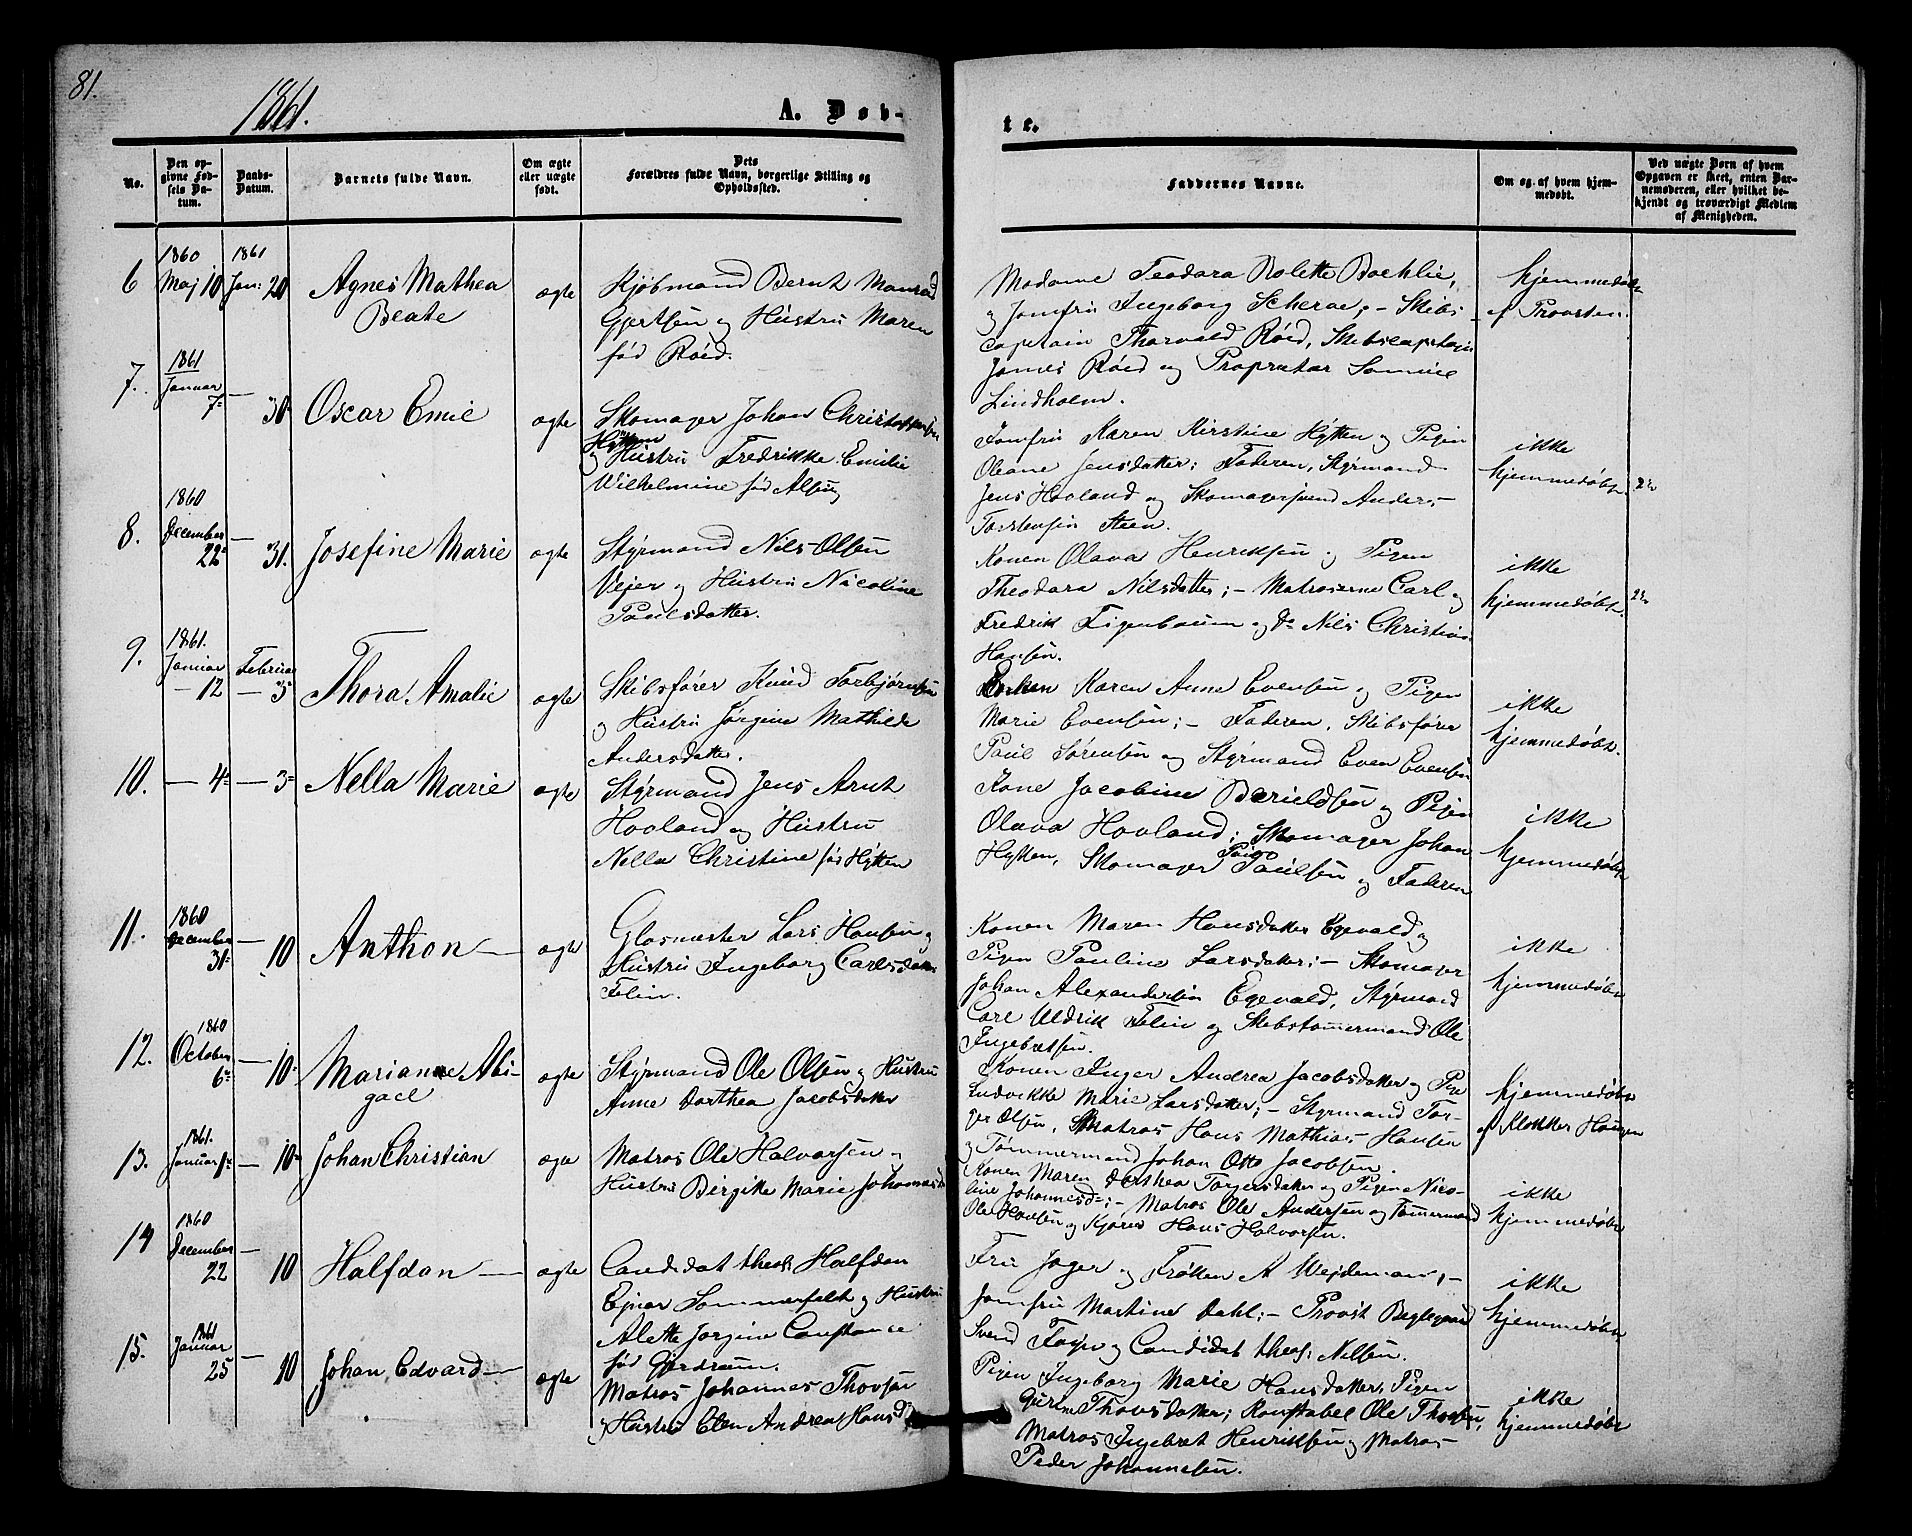 81.
1861.
A. Døb-
te.
No.
Den op-
givne Fød-
sels Da-
tum.
Daabs-
Datum.
Barnets fulde Navn.
Om ægte
eller uægte
født.
Dets
Forældres fulde Navn, borgerlige Stilling og
Opholdssted.
Faddernes Navne.
Om og af hvem hjem-
medøbt.
Ved uægte Børn af hvem
Opgaven er skeet, enten Bar-
nemoderen, eller hvilket be-
kjendt og troværdigt Medlem
af Menigheden.
6
1860
Maj 10
1861
Jan: 20
Agnes Mathea
Beate
ægte
Kjøbmand Bernt Monrad
Gjertsen og Hustru Maren
fød Röed.
Madame Teodora Bolette Boehlie,
og Jomfru Ingeborg Scheroe; - Skibs-
capitain Thorvald Röed, Skibscaptein
James Röed og Proprietær Samuel
Lindholm.
hjemmedøbt
af Provsten.
7.
1861
Januar
7
— 30
Oscar Emil
ægte
Skomager Johan Christophersen
Hytten
og Hustru Fredrikke Emilie
Wilhelmine fød Alsing
Jomfru Karen Kirstine Hytten og Pigen
Oleane Jensdatter; Faderen, Styrmand
Jens Hovland og Skomagersvend Anders
Torstensen Steen.
ikke
hjemmedøbt.
8.
1860
December
22
— 31.
Josefine Marie
ægte
Styrmand Nils Olsen
Vejer og Hustru Nicoline
Paulsdatter.
Konen Olava Henriksen og Pigen
Theodora Nilsdatter; - Matroserne Carl og
Fredrik Figenbaum og Do Nils Christian
Hansen.
ikke
hjemmedøbt.
9.
1861.
Januar
— 12
Februar
— 3
Thora Amalie
ægte
Skibsfører Knud Torbjørnsen
og Hustru Jørgine Mathilde
Andersdatter.
Karen Anne Evensen og Pigen
Marie Evensen; - Faderen, Skibsfører
Paul Sørensen og Styrmand Even Evensen
ikke
hjemmedøbt.
10.
— 4
— 3
Nella Marie
ægte
Styrmand Jens Arnt
Hovland og Hustru
Nella Christine fød Hytten
Kone Jacobine Berieldsen og Pigen
Olava Hovland; Skomager Johan
Hytten, Skomager Paulsen og Faderen
ikke
hjemmedøbt
11.
1860
December
31
— 10
Anthon —
ægte
Glasmester Lars Hansen og
Hustru Ingeborg Carlsdatter
Felin.
Konen Maren Hansdatter Egevald og
Pigen Pauline Larsdatter; - Skomager
Johan Alexandersen Egevald, Styrmand
Carl Uldrik Felin og Skibstømmermand Ole
Ingebretsen.
ikke
hjemmedøbt
12.
1860
October
6
— 10
Marianne Abi-
gael
ægte
Styrmand Ole Olsen og Hustru
Anne Dorthea Jacobsdatter
Konen Inger Andrea Jacobsdatter og Pige
Ludvikke Marie Larsdatter; - Styrmand Tor-
ger Olsen, Matros Hans Mathias Hansen
og Tømmermand Johan Otto Jacobsen.
hjemmedøbt
af Klokker Haugen
13.
1861.
Januar 1
— 10
Johan Christian
ægte
Matros Ole Halvorsen og
Hustru Birgitte Marie Johannesd
Konen Maren Dorthea Torgersdatter og Pigen Nico-
line Johannesd; - Matros Ole Andersen og Tømmermand
Ole Hansen og Kjører Hans Halvorsen.
ikke
hjemmedøbt
14
1860
December
22
— 10
Halfdan —
ægte
Candidat theol: Halfdan
Ejnar Sommerfelt og Hustru
Alette Jørgine Constance
fød Gjerdrum.
Fru Jøger og Frøken A Wejdeman; -
Jomfru Martine Dahl; - Provst Beglegaard
Svend Foyn og Candidat theol: Nilsen.
ikke
hjemmedøbt
15.
1861
Januar
25
— 10
Johan Edvard —
ægte
Matros Johannes Thovsen
og Hustru Elen Andrea Hansd
Pigen Ingeborg Marie Hansdatter, Pigen
Thovsdatter; Konstabel Ole Thovsen,
Matros Ingebret Henriksen og Matros
Peder Johannesen.
ikke
hjemmedøbt